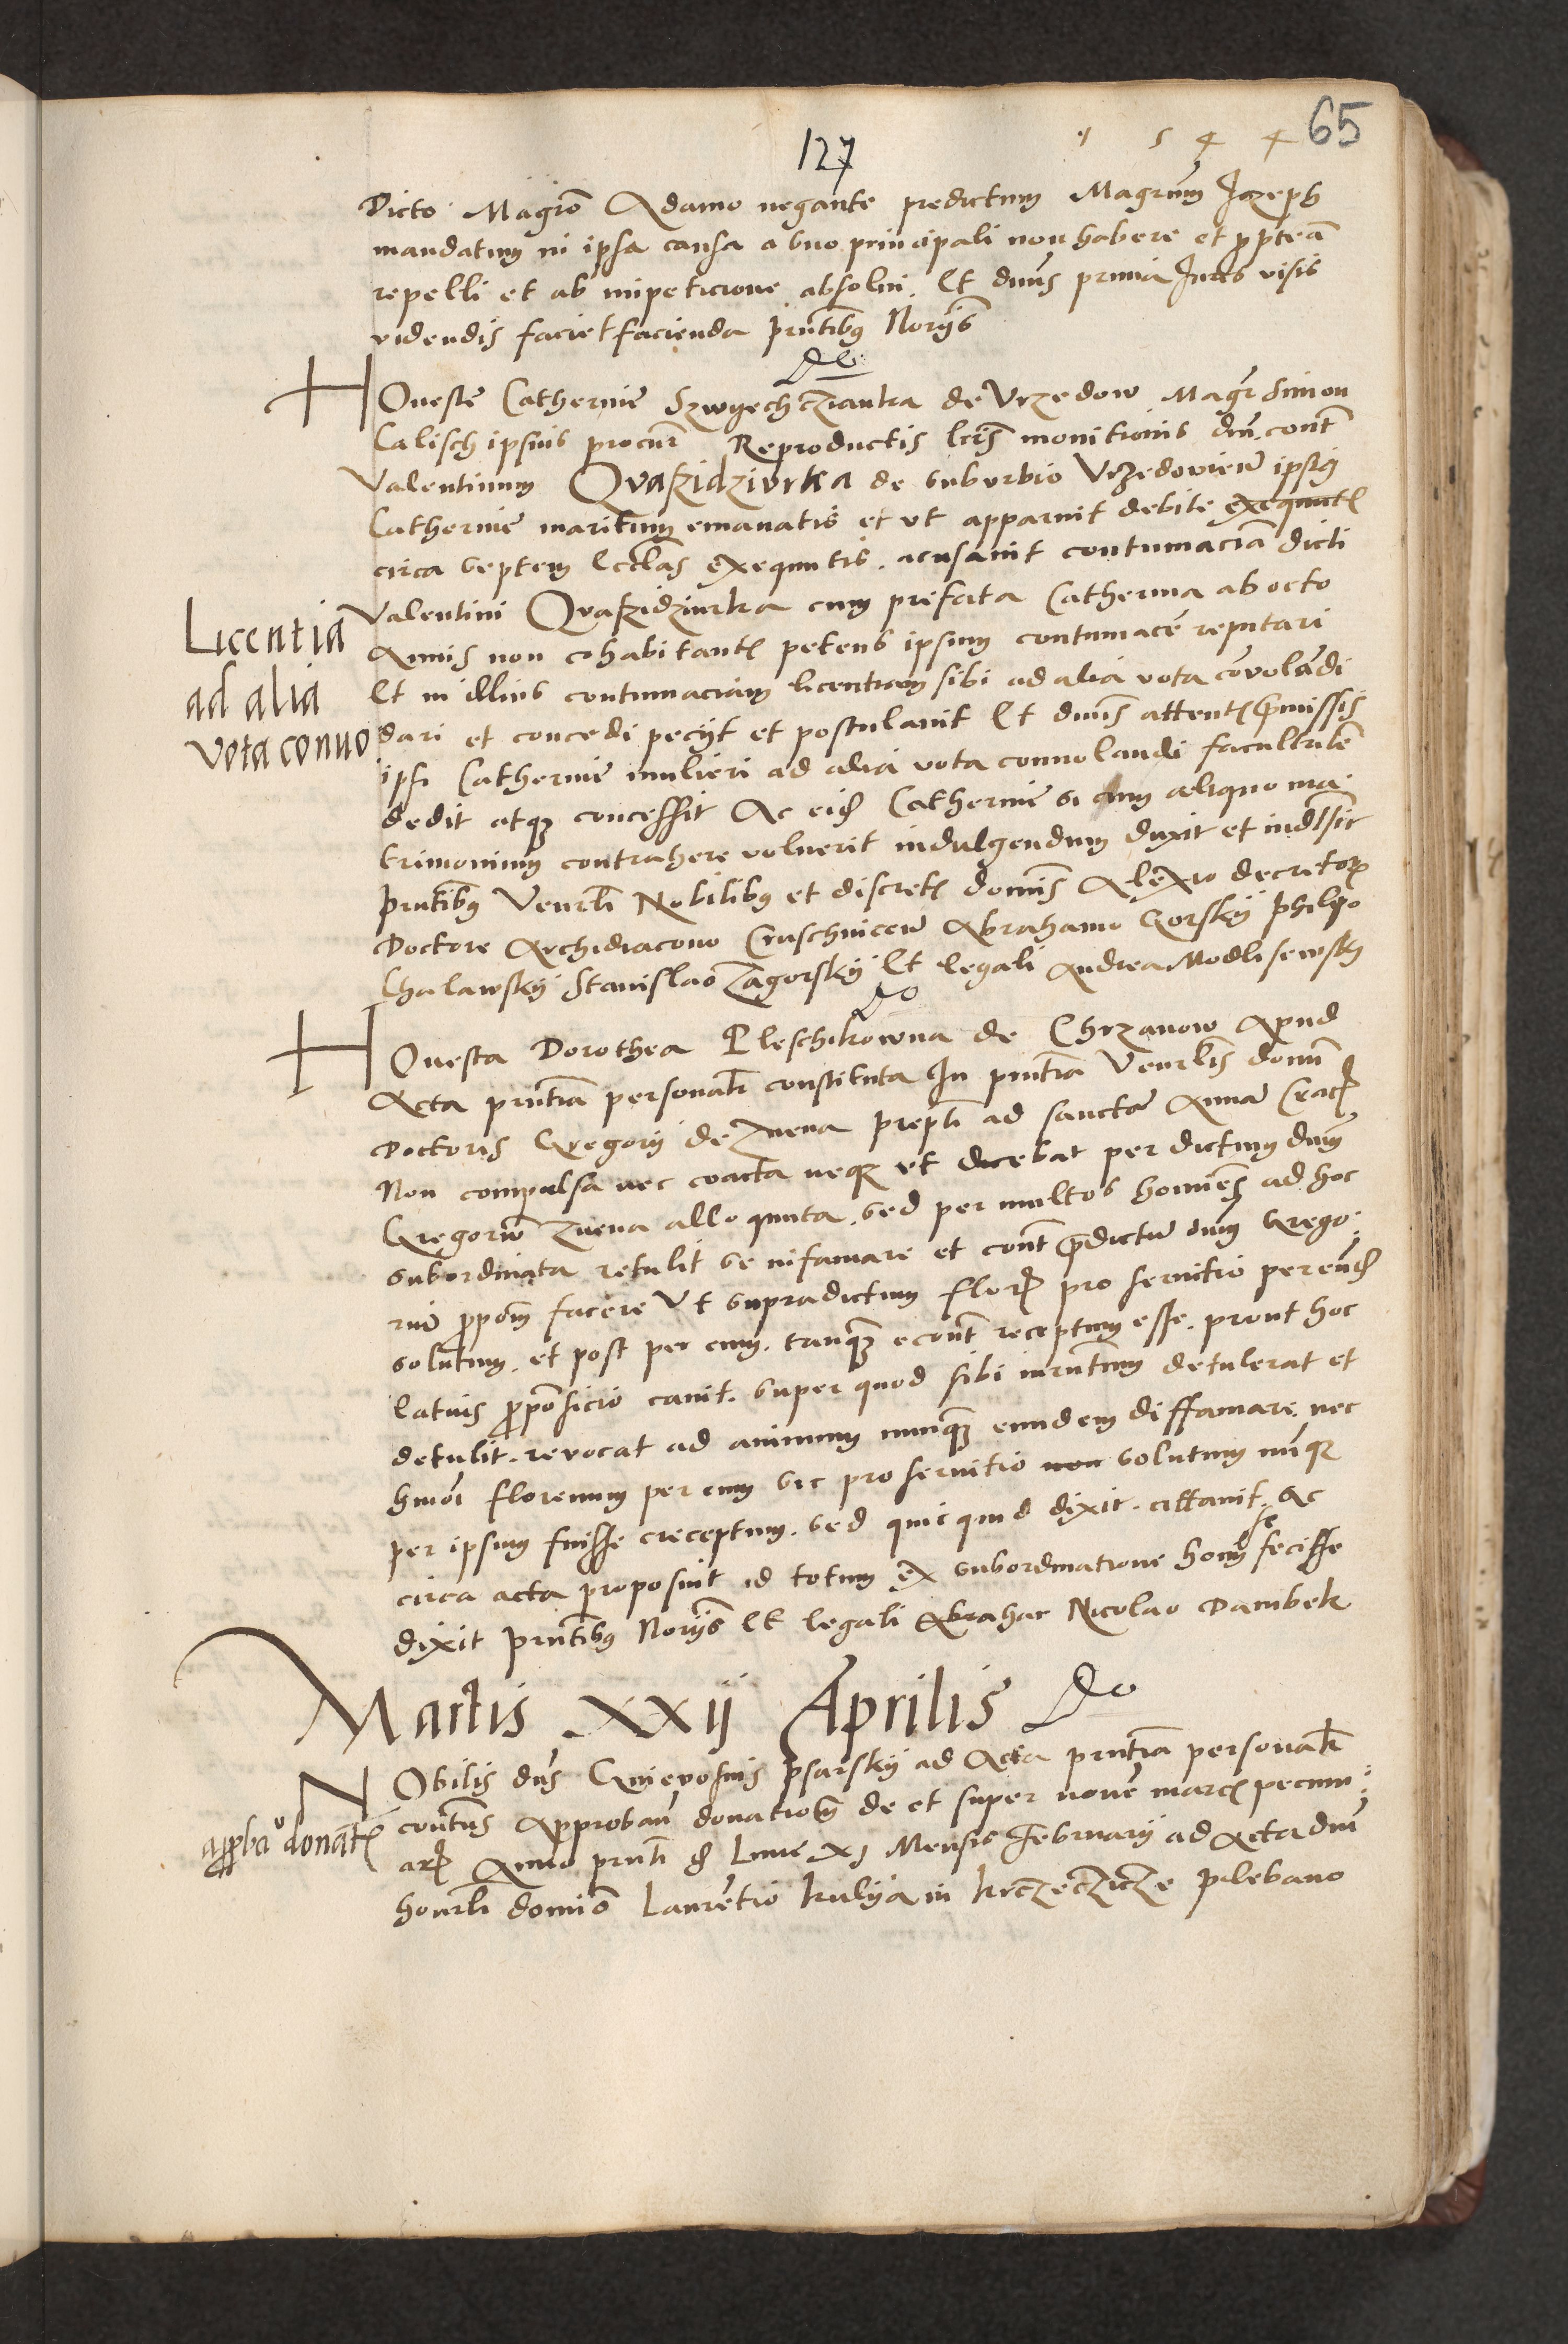 127
1 5 4 4
65
Dicto Magro Adamo negante predictum Magrum Jozeph
mandatum in ipsa causa a suo principali non habere et propterea
repelli et ab impeticione absolvi. Et dnus prima Juris visis
videndis faciet facienda prntibus Noriis
do
Honeste Catherine Szwyechczianka de Vrzedow Magr Simon
Calisch ipsius procur Reproductis lris monitionis dni cont
Valentinum Qvaskidziurka de suburbio Vrzedovien ipsius
Catherine maritum emanatis et ut apparuit debite exequut
circa septem Ecclias exequutis. acusavit contumaciam dicti
Licentia
ad alia
vota convo
Valentini Qvaskidziurka cum prefata Catherina ab octo
Annis non cohabitant petens ipsum contumacem reputari
Et in illius contumaciam licentiam sibi ad alia vota convolandi
dari et concedi peciit et postulavit Et dnus attent premissis
ipsi Catherine mulieri ad alia vota convolandi facultatem
dedit atque concessit Ac eid Catherine si cum aliquo ma
trimonium contrahere voluerit indulgendum duxit et indulsit
prntibus Venrli Nobilibus et discret domis Alexio decretor
Doctore Archidiacono Cruschvicen Abrahamo Gorskij philipo
Chalawskij Stanislao Zagorskij Et legali Andrea Modlisewsky
do
Honesta Dorothea Pleschkowna de Chrzanow Apud
Acta prntia personalr constituta In prntia Venrlis domi
Doctoris Gregorij de Znena prepti ad sanctam Annam Crac
Non compulsa nec coacta neque ut dicebat per dictum dnum
Gregorium Znena alloquuta. sed per multos homines ad hoc
subordinata retulit se infamare et cont predictum dnum Grego
rium propom facere Vt supradictum flor pro servitio per eund
solutum. et post per eum. tanquam econt receptum esse. prout hoc
latius proposicio canit. super quod sibi iurntum detulerat et
detulit. revocat ad animum nunquam eundem diffamare. nec
hmoi florenum per eum sic pro servitio non solutum nunque
per ipsum fuisse ereceptum. sed quicquid dixit. cittavit. Ac
circa acta proposuit id totum ex subordinatione homin se fecisse
dixit prntibus Noriis Et legali Abrahae Nicolao Dambek
Martis xxij Aprilis do
Nobilis dns Gnievosius psarskij ad Acta prntia personalr
approba donat
contns Approbavit donationem de et super novem marc pecuni
ar Anno prnti d Lune xj Mensis February ad Acta dni
honrli domino Laurentio kulya in krczeczicze plebano